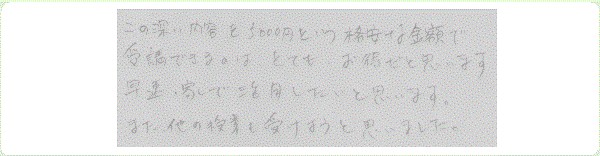 この深い内容を5000円という格安な金額で
受講できるのは とても お得だと思います
早速、家で活用したいと思います。
また他の授業も受けようと思いました。